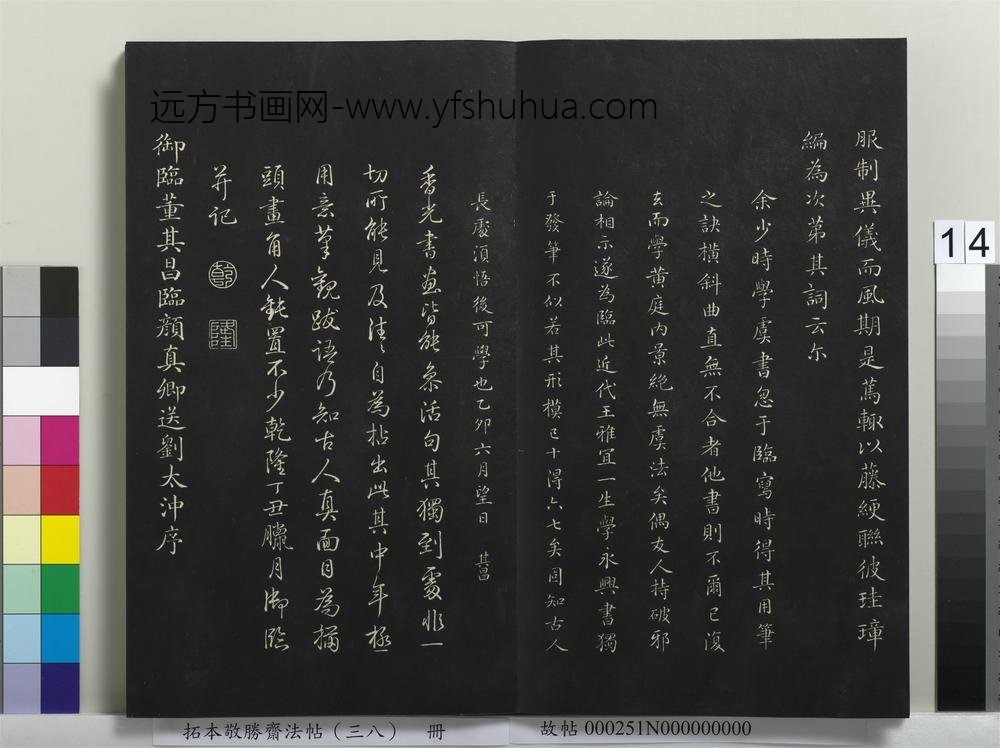 远方书画网-www.yfshuhua.com
服制異儀而風期是篤輙以藤綆聯彼珪璋
編為次第其詞云尓
余少時學虞書忽于臨寫時得其用筆
之訣橫斜曲直無不合者他書則不爾已復
去而學黄庭内景絶無虞法矣偶友人持破邪
論相示遂為臨此近代王雅宜一生學永興書獨
于發筆不似若其形模已十得六七矣固知古人
長處須悟後可學也乙卯六月望日 其昌
香光書画皆能条活句其獨到處非一
切所能見及法自為拈出此其中年極
用意筆觀跋語乃知古人真面目為描
頭畫角人銋置不少乾隆丁丑臘月御臨
并记
乾
隆
御臨董其昌臨顔真卿送劉太沖序
14
拓本敬勝齋法帖（三八） 冊
故帖 000251N000000000